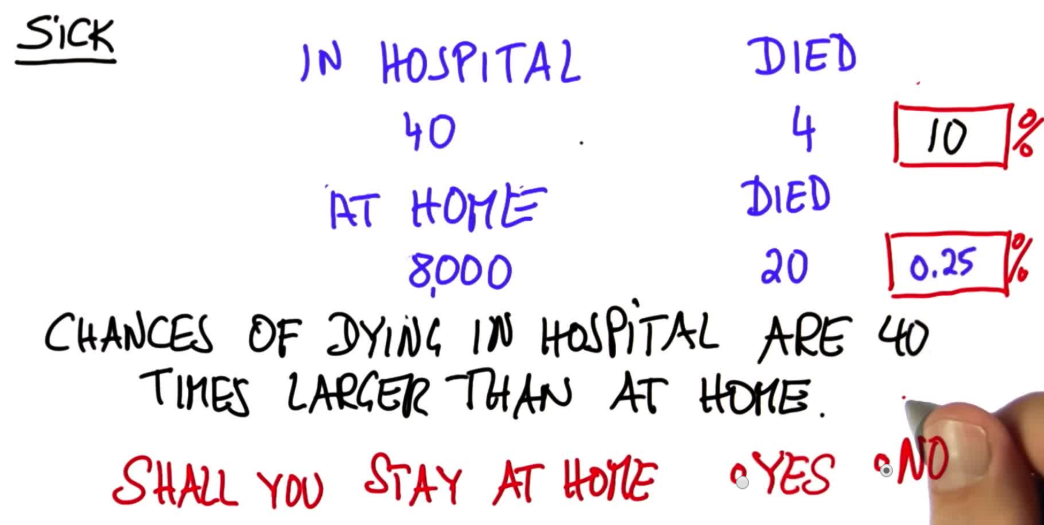 SICK
IN HOSPITAL DIED
40 4 10 %
AT HOME DIED
8,000 20 0.25 %
CHANCES OF DYING IN HOSPITAL ARE 40
TIMES LARGER THAN AT HOME.
SHALL YOU STAY AT HOME YES NO